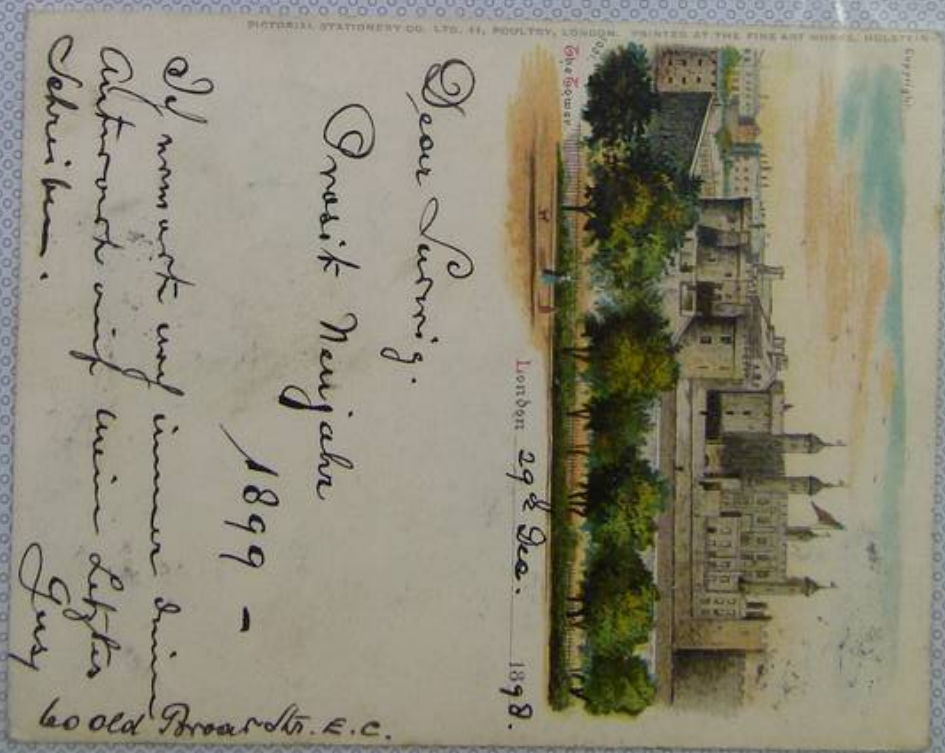 PICTORIAL STATIONERY CO. LTD. 41, POULTRY, LONDON. PRINTED AT THE FINE ART WORKS, HOLSTEIN
Copyright
The Tower
London 29th Dec. 1898.
Dear Ludwig.
Prosit Neujahr
1899 –
Ich warte noch immer
Antwort auf mein Letztes
Schreiben.
Gusy
60 Old Broad Str. E.C.